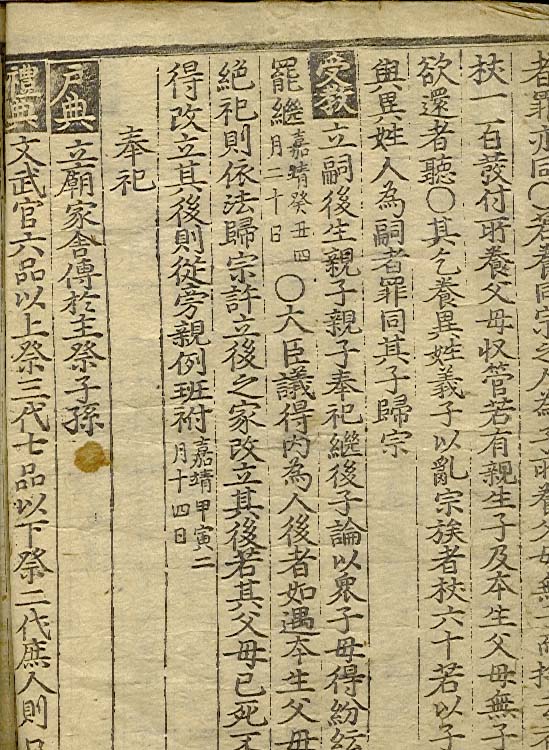 者罪亦同〇若養同宗之人為子所養父母無子而捨去
杖一百發付所養父母収管若有親生子及本生父母無子
欲還者聽〇其乞養異姓義子以亂宗族者杖六十若以子
與異姓人為嗣者罪同其子歸宗
受教立嗣後生親子親子奉祀繼後子論以衆子毋得紛紜
罷繼嘉靖癸丑四月二十日〇大臣議得內為人後者如遇本生父母
絶祀則依法歸宗許立後之家改立其後若其父母已死不
得改立其後則從旁親例班祔嘉靖甲寅二月十四日
奉祀
戶典立廟家舍傳於主祭子孫
禮典文武官六品以上祭三代七品以下祭二代庶人則